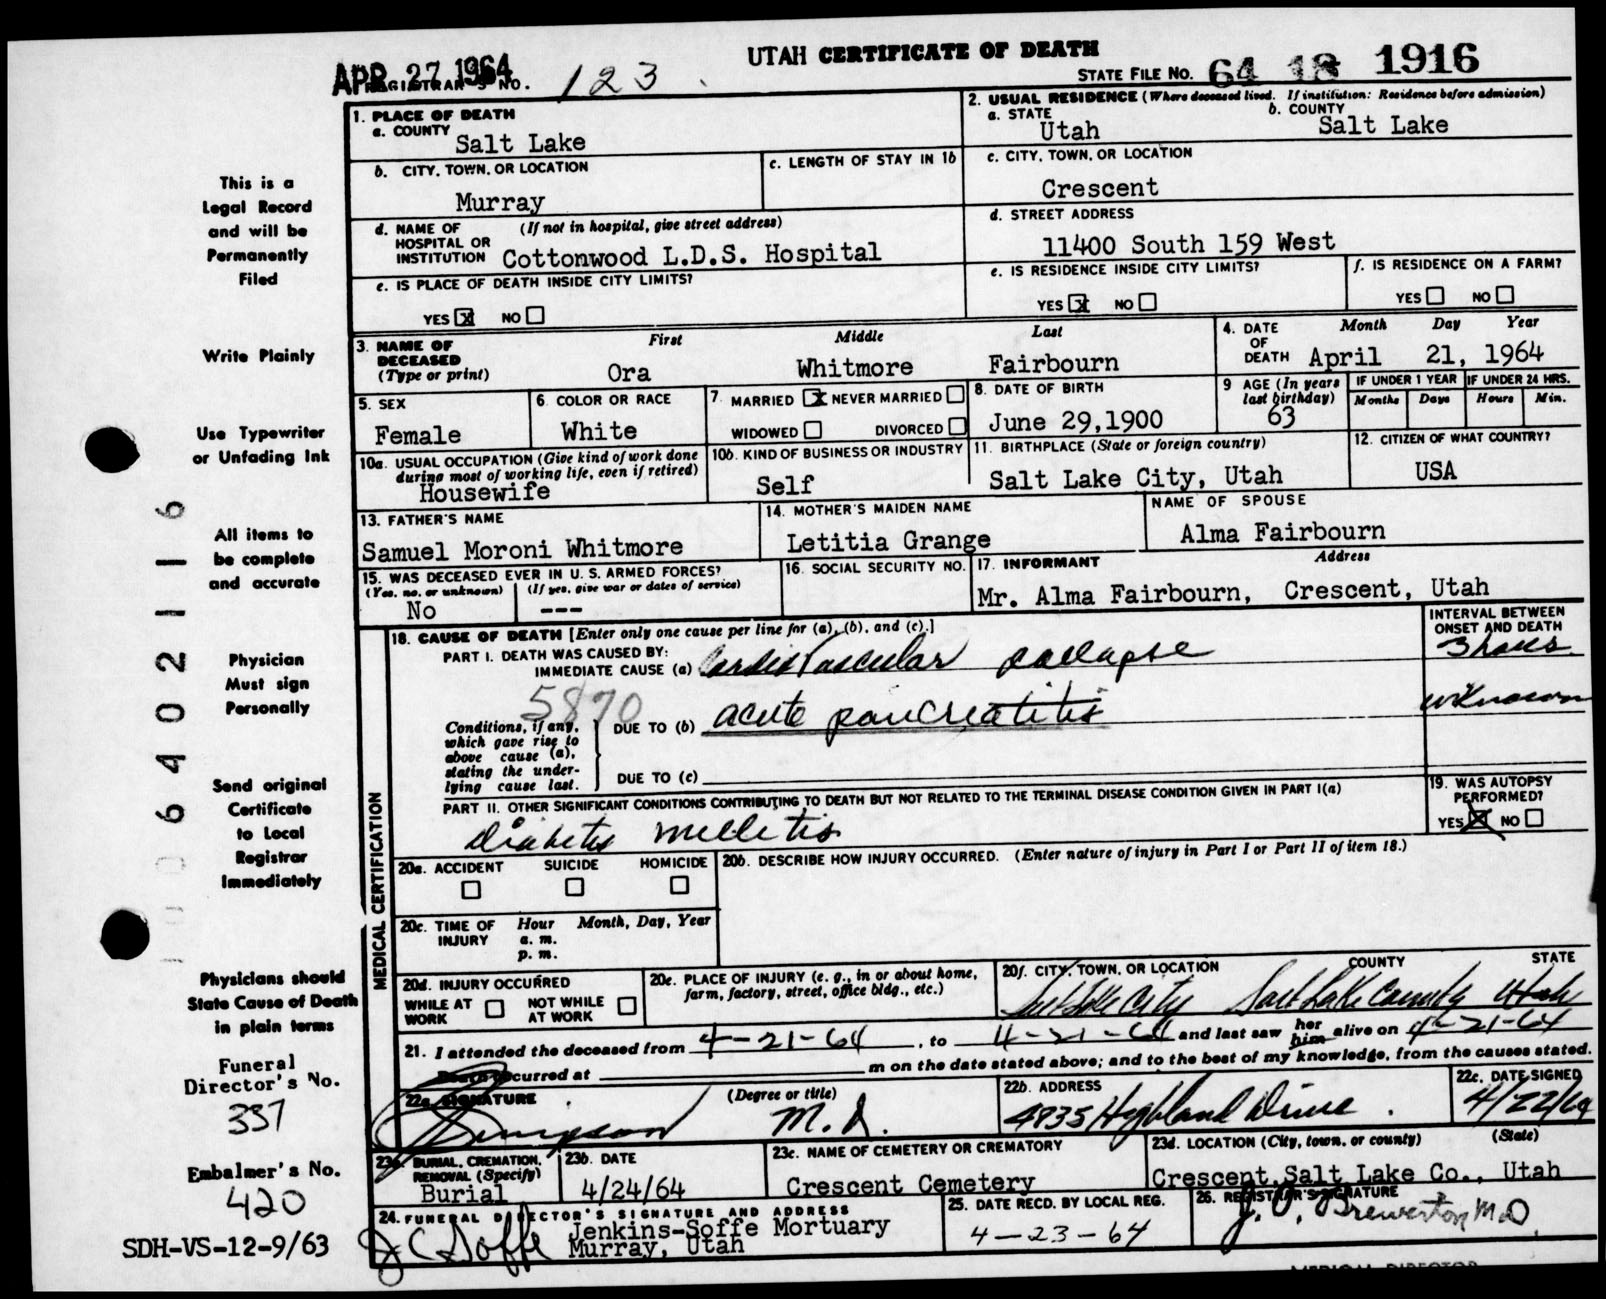 UTAH CERTIFICATE OF DEATH
APR 27 1964
REGISTRAR'S NO. 123
STATE FILE NO. 64 18 1916
1. PLACE OF DEATH
a. COUNTY
Salt Lake
2. USUAL RESIDENCE (Where deceased lived. If institution: Residence before admission)
a. STATE
Utah
b. COUNTY
Salt Lake
b. CITY, TOWN, OR LOCATION
Murray
c. LENGTH OF STAY IN 1b
c. CITY, TOWN, OR LOCATION
Crescent
d. NAME OF HOSPITAL OR INSTITUTION (If not in hospital, give street address)
Cottonwood L.D.S. Hospital
d. STREET ADDRESS
11400 South 159 West
e. IS PLACE OF DEATH INSIDE CITY LIMITS?
YES X NO
e. IS RESIDENCE INSIDE CITY LIMITS?
YES X NO
f. IS RESIDENCE ON A FARM?
YES NO
3. NAME OF DECEASED (Type or print)
First Middle Last
Ora Whitmore Fairbourn
4. DATE OF DEATH
Month Day Year
April 21, 1964
5. SEX
Female
6. COLOR OR RACE
White
7. MARRIED X NEVER MARRIED
WIDOWED DIVORCED
8. DATE OF BIRTH
June 29,1900
9 AGE (In years last birthday)
63
IF UNDER 1 YEAR
Months Days
IF UNDER 24 HRS.
Hours Min.
10a. USUAL OCCUPATION (Give kind of work done during most of working life, even if retired)
Housewife
10b. KIND OF BUSINESS OR INDUSTRY
Self
11. BIRTHPLACE (State or foreign country)
Salt Lake City, Utah
12. CITIZEN OF WHAT COUNTRY?
USA
13. FATHER'S NAME
Samuel Moroni Whitmore
14. MOTHER'S MAIDEN NAME
Letitia Grange
NAME OF SPOUSE
Alma Fairbourn
15. WAS DECEASED EVER IN U. S. ARMED FORCES?
(Yes, no, or unknown) (If yes, give war or dates of service)
No ---
16. SOCIAL SECURITY NO.
17. INFORMANT Address
Mr. Alma Fairbourn, Crescent, Utah
18. CAUSE OF DEATH [Enter only one cause per line for (a), (b), and (c).]
INTERVAL BETWEEN ONSET AND DEATH
PART I. DEATH WAS CAUSED BY:
IMMEDIATE CAUSE (a) Cardiovascular collapse
3 hours
5870
Conditions, if any, which gave rise to above cause (a), stating the underlying cause last.
DUE TO (b) acute pancreatitis
unknown
DUE TO (c)
PART II. OTHER SIGNIFICANT CONDITIONS CONTRIBUTING TO DEATH BUT NOT RELATED TO THE TERMINAL DISEASE CONDITION GIVEN IN PART I(a)
diabetes melletis
19. WAS AUTOPSY PERFORMED?
YES X NO
MEDICAL CERTIFICATION
20a. ACCIDENT SUICIDE HOMICIDE
20b. DESCRIBE HOW INJURY OCCURRED. (Enter nature of injury in Part I or Part II of item 18.)
20c. TIME OF INJURY
Hour Month, Day, Year
a. m.
p. m.
20d. INJURY OCCURRED
WHILE AT WORK NOT WHILE AT WORK
20e. PLACE OF INJURY (e. g., in or about home, farm, factory, street, office bldg., etc.)
20f. CITY, TOWN, OR LOCATION COUNTY STATE
Salt Lake City Salt Lake County Utah
21. I attended the deceased from 4-21-64, to 4-21-64 and last saw her him alive on 4-21-64
Death occurred at m on the date stated above; and to the best of my knowledge, from the causes stated.
22a. SIGNATURE (Degree or title)
Simpson M.D.
22b. ADDRESS
4835 Highland Drive.
22c. DATE SIGNED
4/22/64
23a. BURIAL, CREMATION, REMOVAL (Specify)
Burial
23b. DATE
4/24/64
23c. NAME OF CEMETERY OR CREMATORY
Crescent Cemetery
23d. LOCATION (City, town, or county) (State)
Crescent, Salt Lake Co., Utah
24. FUNERAL DIRECTOR'S SIGNATURE AND ADDRESS
J C Soffe
Jenkins-Soffe Mortuary
Murray, Utah
25. DATE RECD. BY LOCAL REG.
4-23-64
26. REGISTRAR'S SIGNATURE
Brewerton M.D.
MEDICAL DIRECTOR
This is a
Legal Record
and will be
Permanently
Filed
Write Plainly
Use Typewriter
or Unfading Ink
All items to
be complete
and accurate
Physician
Must sign
Personally
Send original
Certificate
to Local
Registrar
Immediately
Physicians should
State Cause of Death
in plain terms
Funeral
Director's No.
337
Embalmer's No.
420
SDH-VS-12-9/63